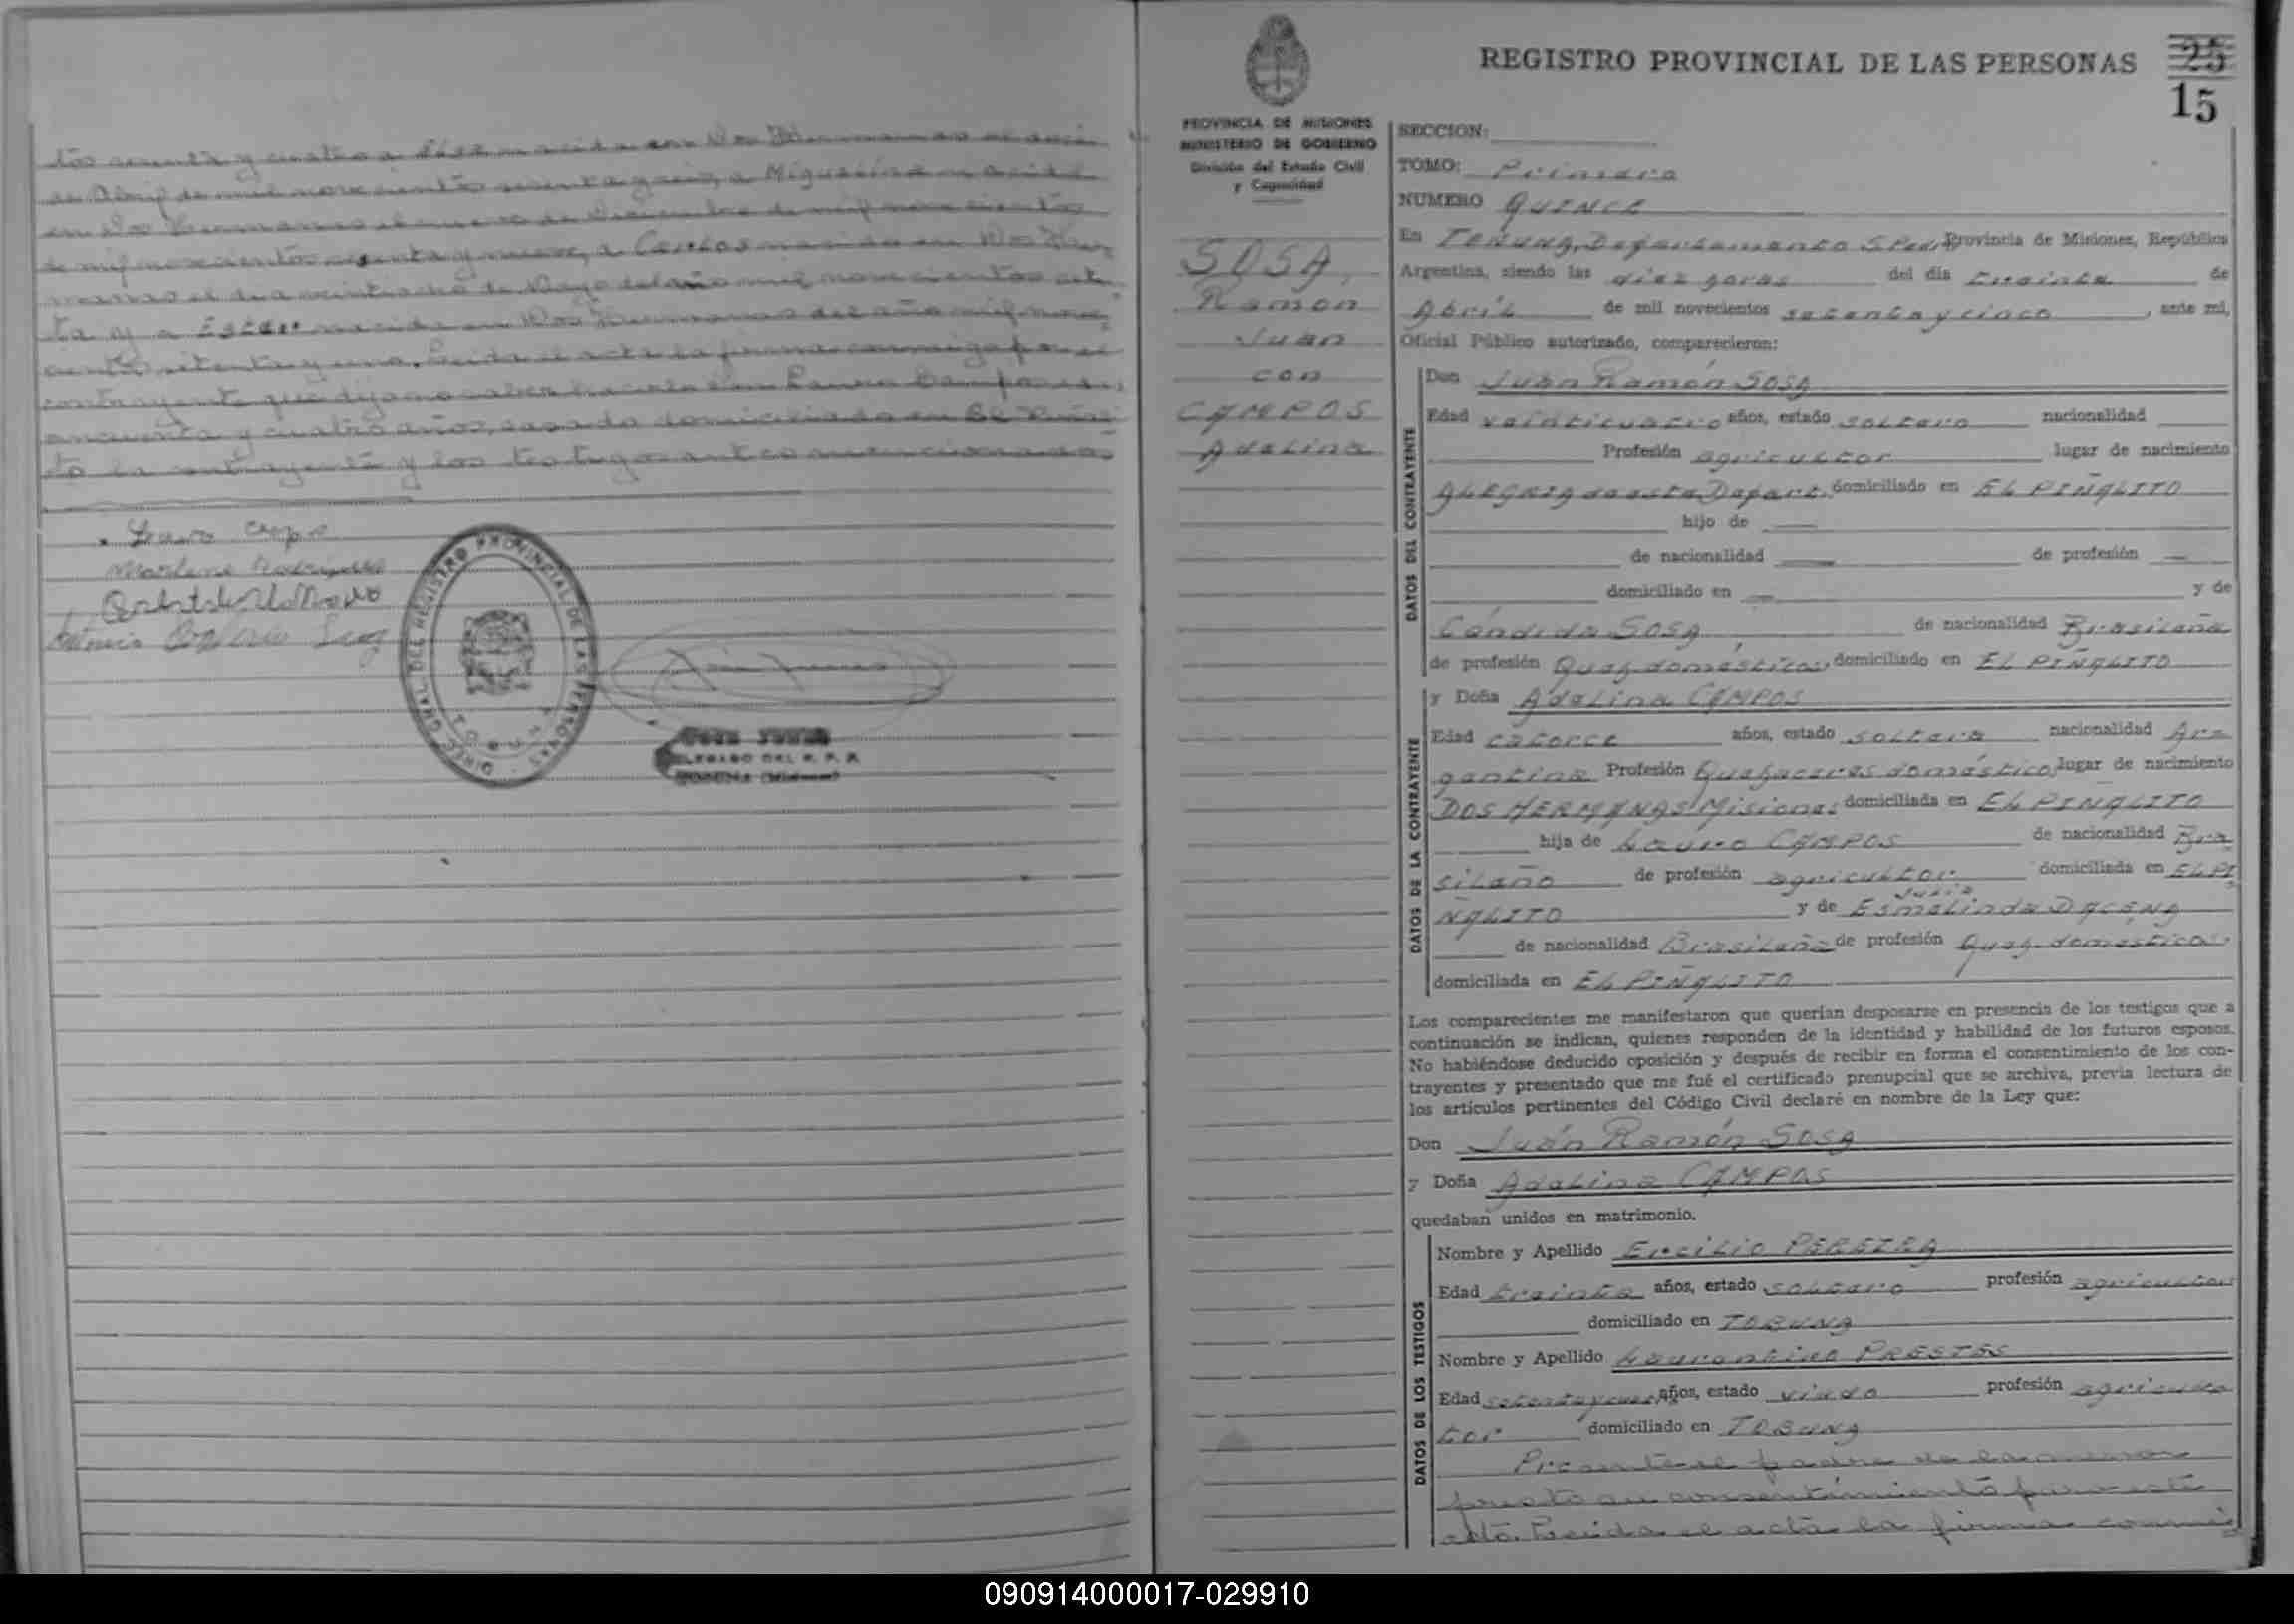 de Abril de mil novecientos sesenta y seis, a Miguelina nacida
en Dos Hermanas el nueve de Diciembre de mil novecientos
de mil novecientos sesenta y nueve, a Carlos nacido en Dos Her-
manas el dia veintiocho de Mayo del año mil novecientos seten-
ta y a Ester nacida en Dos Hermanas del año mil nove-
cientos setenta y uno. Leida el acta la firma conmigo por el
contrayente que dijo no saber hacerlo Don Lauro Campos de
cincuenta y cuatro años, casado domiciliado en El Piñali-
to la contrayente y los testigos antes mencionados.
Marlene Rodriguez
DIREC. GRAL. DEL REGISTRO PROVINCIAL DE LAS PERSONAS
TOBUNA
DELEGADO DEL R. P. P.
TOBUNA (Misiones)
REGISTRO PROVINCIAL DE LAS PERSONAS
25
15
PROVINCIA DE MISIONES
MINISTERIO DE GOBIERNO
División del Estado Civil
y Capacidad
SOSA,
Ramon
Juan
con
CAMPOS
Adelina
SECCION:
TOMO: Primero
NUMERO QUINCE
En TOBUNA, Departamento S. Pedro Provincia de Misiones, República
Argentina, siendo las diez horas del día treinta de
Abril de mil novecientos setenta y cinco, ante mí,
Oficial Público autorizado, comparecieron:
DATOS DEL CONTRAYENTE
Don Juán Ramón SOSA
Edad veinticuatro años, estado soltero nacionalidad
Profesión agricultor lugar de nacimiento
ALEGRIA de este Depart. domiciliado en EL PIÑALITO
hijo de
de nacionalidad de profesión
domiciliado en y de
Cándida SOSA de nacionalidad Brasileña
de profesión Queh. domésticos, domiciliado en EL PIÑALITO
DATOS DE LA CONTRAYENTE
y Doña Adelina CAMPOS
Edad catorce años, estado soltera nacionalidad Ar-
gentina Profesión Quehaceres domésticos lugar de nacimiento
DOS HERMANAS Misiones domiciliada en EL PIÑALITO
hija de Lauro CAMPOS de nacionalidad Bra
sileño de profesión agricultor domiciliada en EL PI
ÑALITO y de Esmelinda DACENA
de nacionalidad Brasileña de profesión Queh. domesticos,
domiciliada en EL PIÑALITO
Los comparecientes me manifestaron que querían desposarse en presencia de los testigos que a
continuación se indican, quienes responden de la identidad y habilidad de los futuros esposos.
No habiéndose deducido oposición y después de recibir en forma el consentimiento de los con-
trayentes y presentado que me fué el certificado prenupcial que se archiva, previa lectura de
los artículos pertinentes del Código Civil declaré en nombre de la Ley que:
Don Juán Ramón SOSA
y Doña Adelina CAMPOS
quedaban unidos en matrimonio.
DATOS DE LOS TESTIGOS
Nombre y Apellido Ercilio PEREIRA
Edad treinta años, estado soltero profesión agricultor
domiciliado en TOBUNA
Nombre y Apellido Laurentino PRESTES
Edad años, estado viudo profesión agricul
tor domiciliado en TOBUNA
Presente el padre de la menor
presto su consentimiento para este
acto. Leida el acta la firma conmi
090914000017-029910